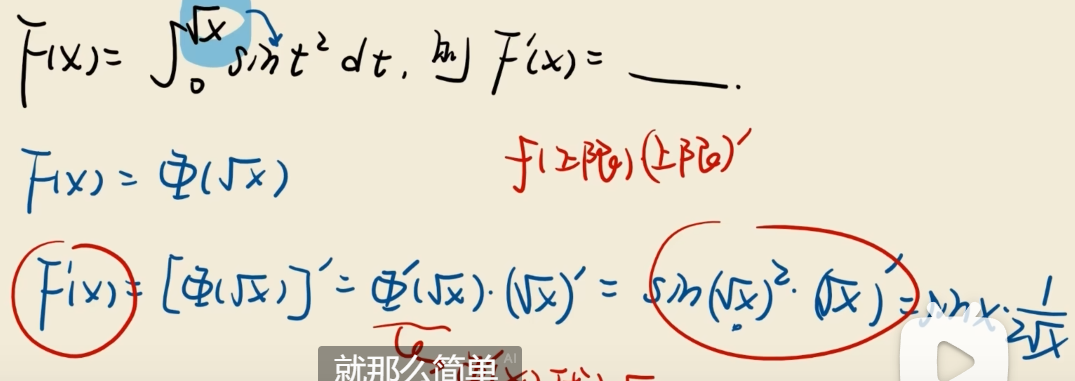 F(x) = ∫₀^√x sin t² dt, 则 F'(x) = ____.
F(x) = Φ(√x)
f(上限)(上限)'
F'(x) = [Φ(√x)]' = Φ'(√x)·(√x)' = sin(√x)²·(√x)' = sin x · 1/(2√x)
就那么简单
AI